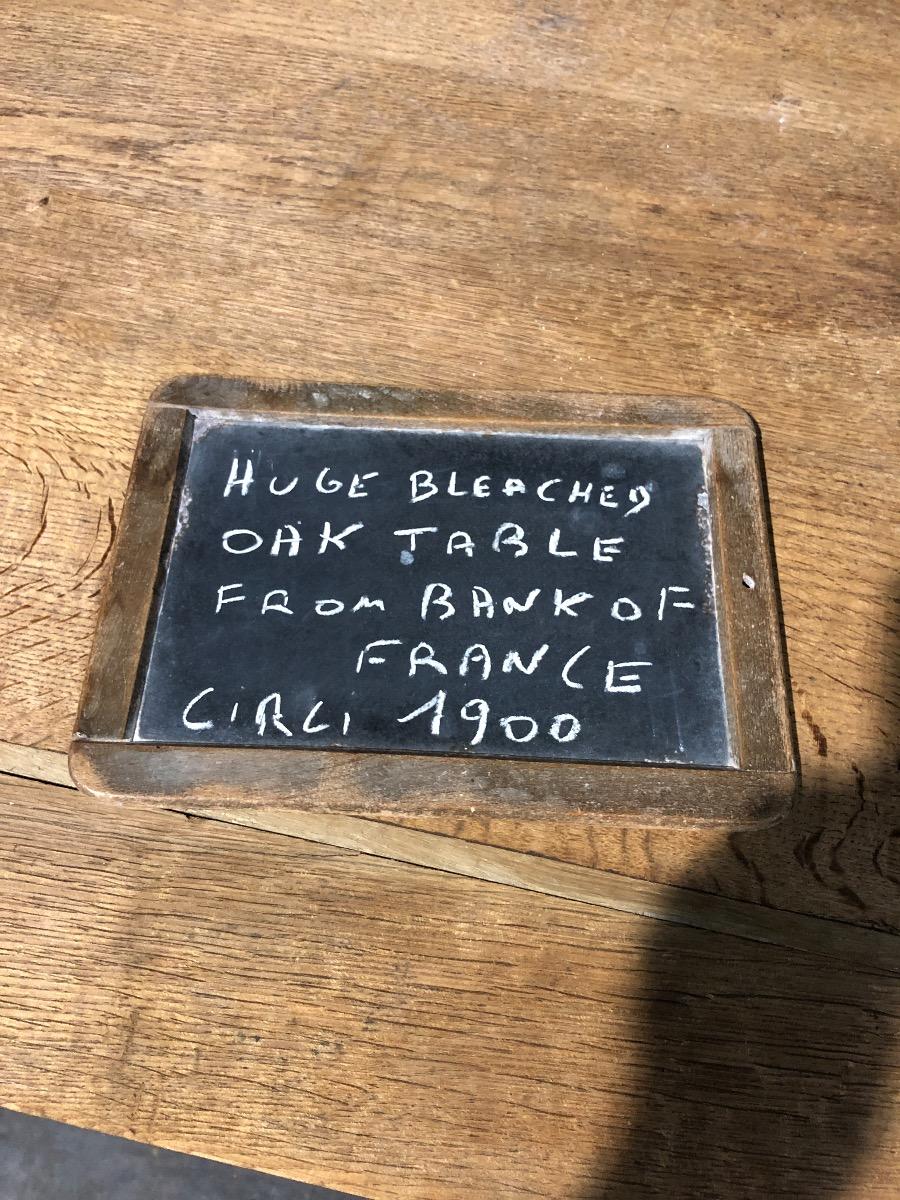 HUGE BLEACHED
OAK TABLE
FROM BANK OF
FRANCE
CIRCI 1900